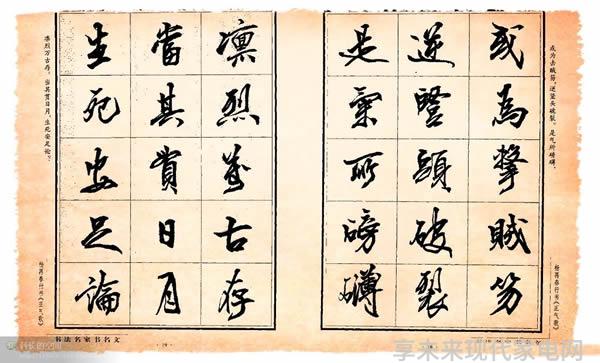 或为击贼笏，逆竖头破裂。是气所磅礴，
杨再春行书《正气歌》
或為擊賊笏
逆豎頭破裂
是氣所磅礴
凛烈萬古存
當其貫日月
生死安足論
凛烈万古存。当其贯日月，生死安足论？
杨再春行书《正气歌》
书法名家书名文
享未来现代家电网